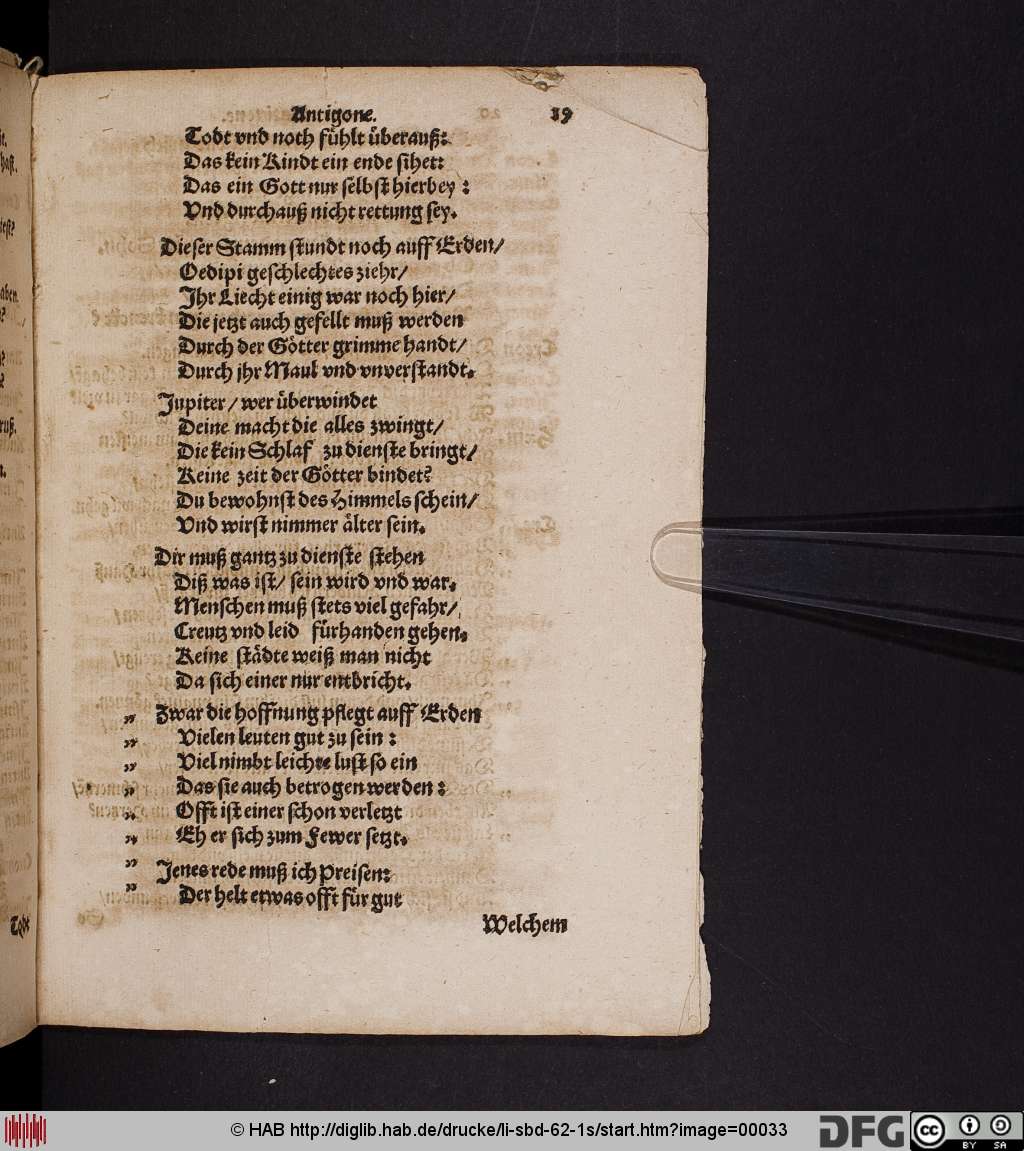 Antigone. 19
Todt vnd noch fühlt überauß:
Das kein Kindt ein ende sihet:
Das ein Gott nur selbst hierbey :
Vnd durchauß nicht rettung sey.
Dieser Stamm stundt noch auff Erden/
Oedipi geschlechtes ziehr/
Jhr Liecht einig war noch hier/
Die jetzt auch gefellt muß werden
Durch der Götter grimme handt/
Durch jhr Maul vnd vnverstandt.
Jupiter / wer überwindet
Deine macht die alles zwingt/
Die kein Schlaf zu dienste bringt/
Keine zeit der Götter bindet?
Du bewohnst des Himmels schein/
Vnd wirst nimmer älter sein.
Dir muß gantz zu dienste stehen
Diß was ist/ sein wird vnd war.
Menschen muß stets viel gefahr/
Creutz vnd leid fürhanden gehen.
Keine städte weiß man nicht
Da sich einer nur entbricht.
„ Zwar die hoffnung pflegt auff Erden
„ Vielen leuten gut zu sein :
„ Viel nimbt leichte lust so ein
„ Das sie auch betrogen werden :
„ Offt ist einer schon verletzt
„ Eh er sich zum Fewer setzt.
„ Jenes rede muß ich Preisen:
„ Der helt etwas offt für gut
Welchem
haft.
aben.
ruß.
Todt
© HAB http://diglib.hab.de/drucke/li-sbd-62-1s/start.htm?image=00033
DFG
cc
BY SA